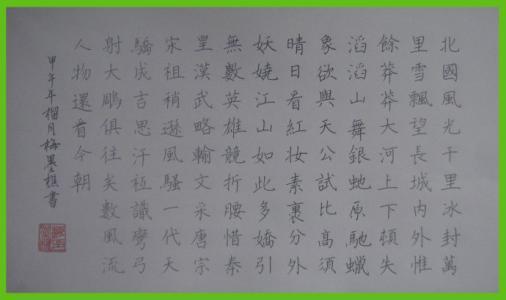 北國風光千里冰封萬
里雪飄望長城内外惟
餘莽莽大河上下頓失
滔滔山舞銀虵原馳蠟
象欲與天公試比高須
晴日看紅妆素裹分外
妖嬈江山如此多嬌引
無數英雄競折腰惜秦
皇漢武略輸文采唐宗
宋祖稍遜風騷一代天
驕成吉思汗祗識彎弓
射大鵰俱往矣數風流
人物還看今朝
甲午年榴月梅墨樵書